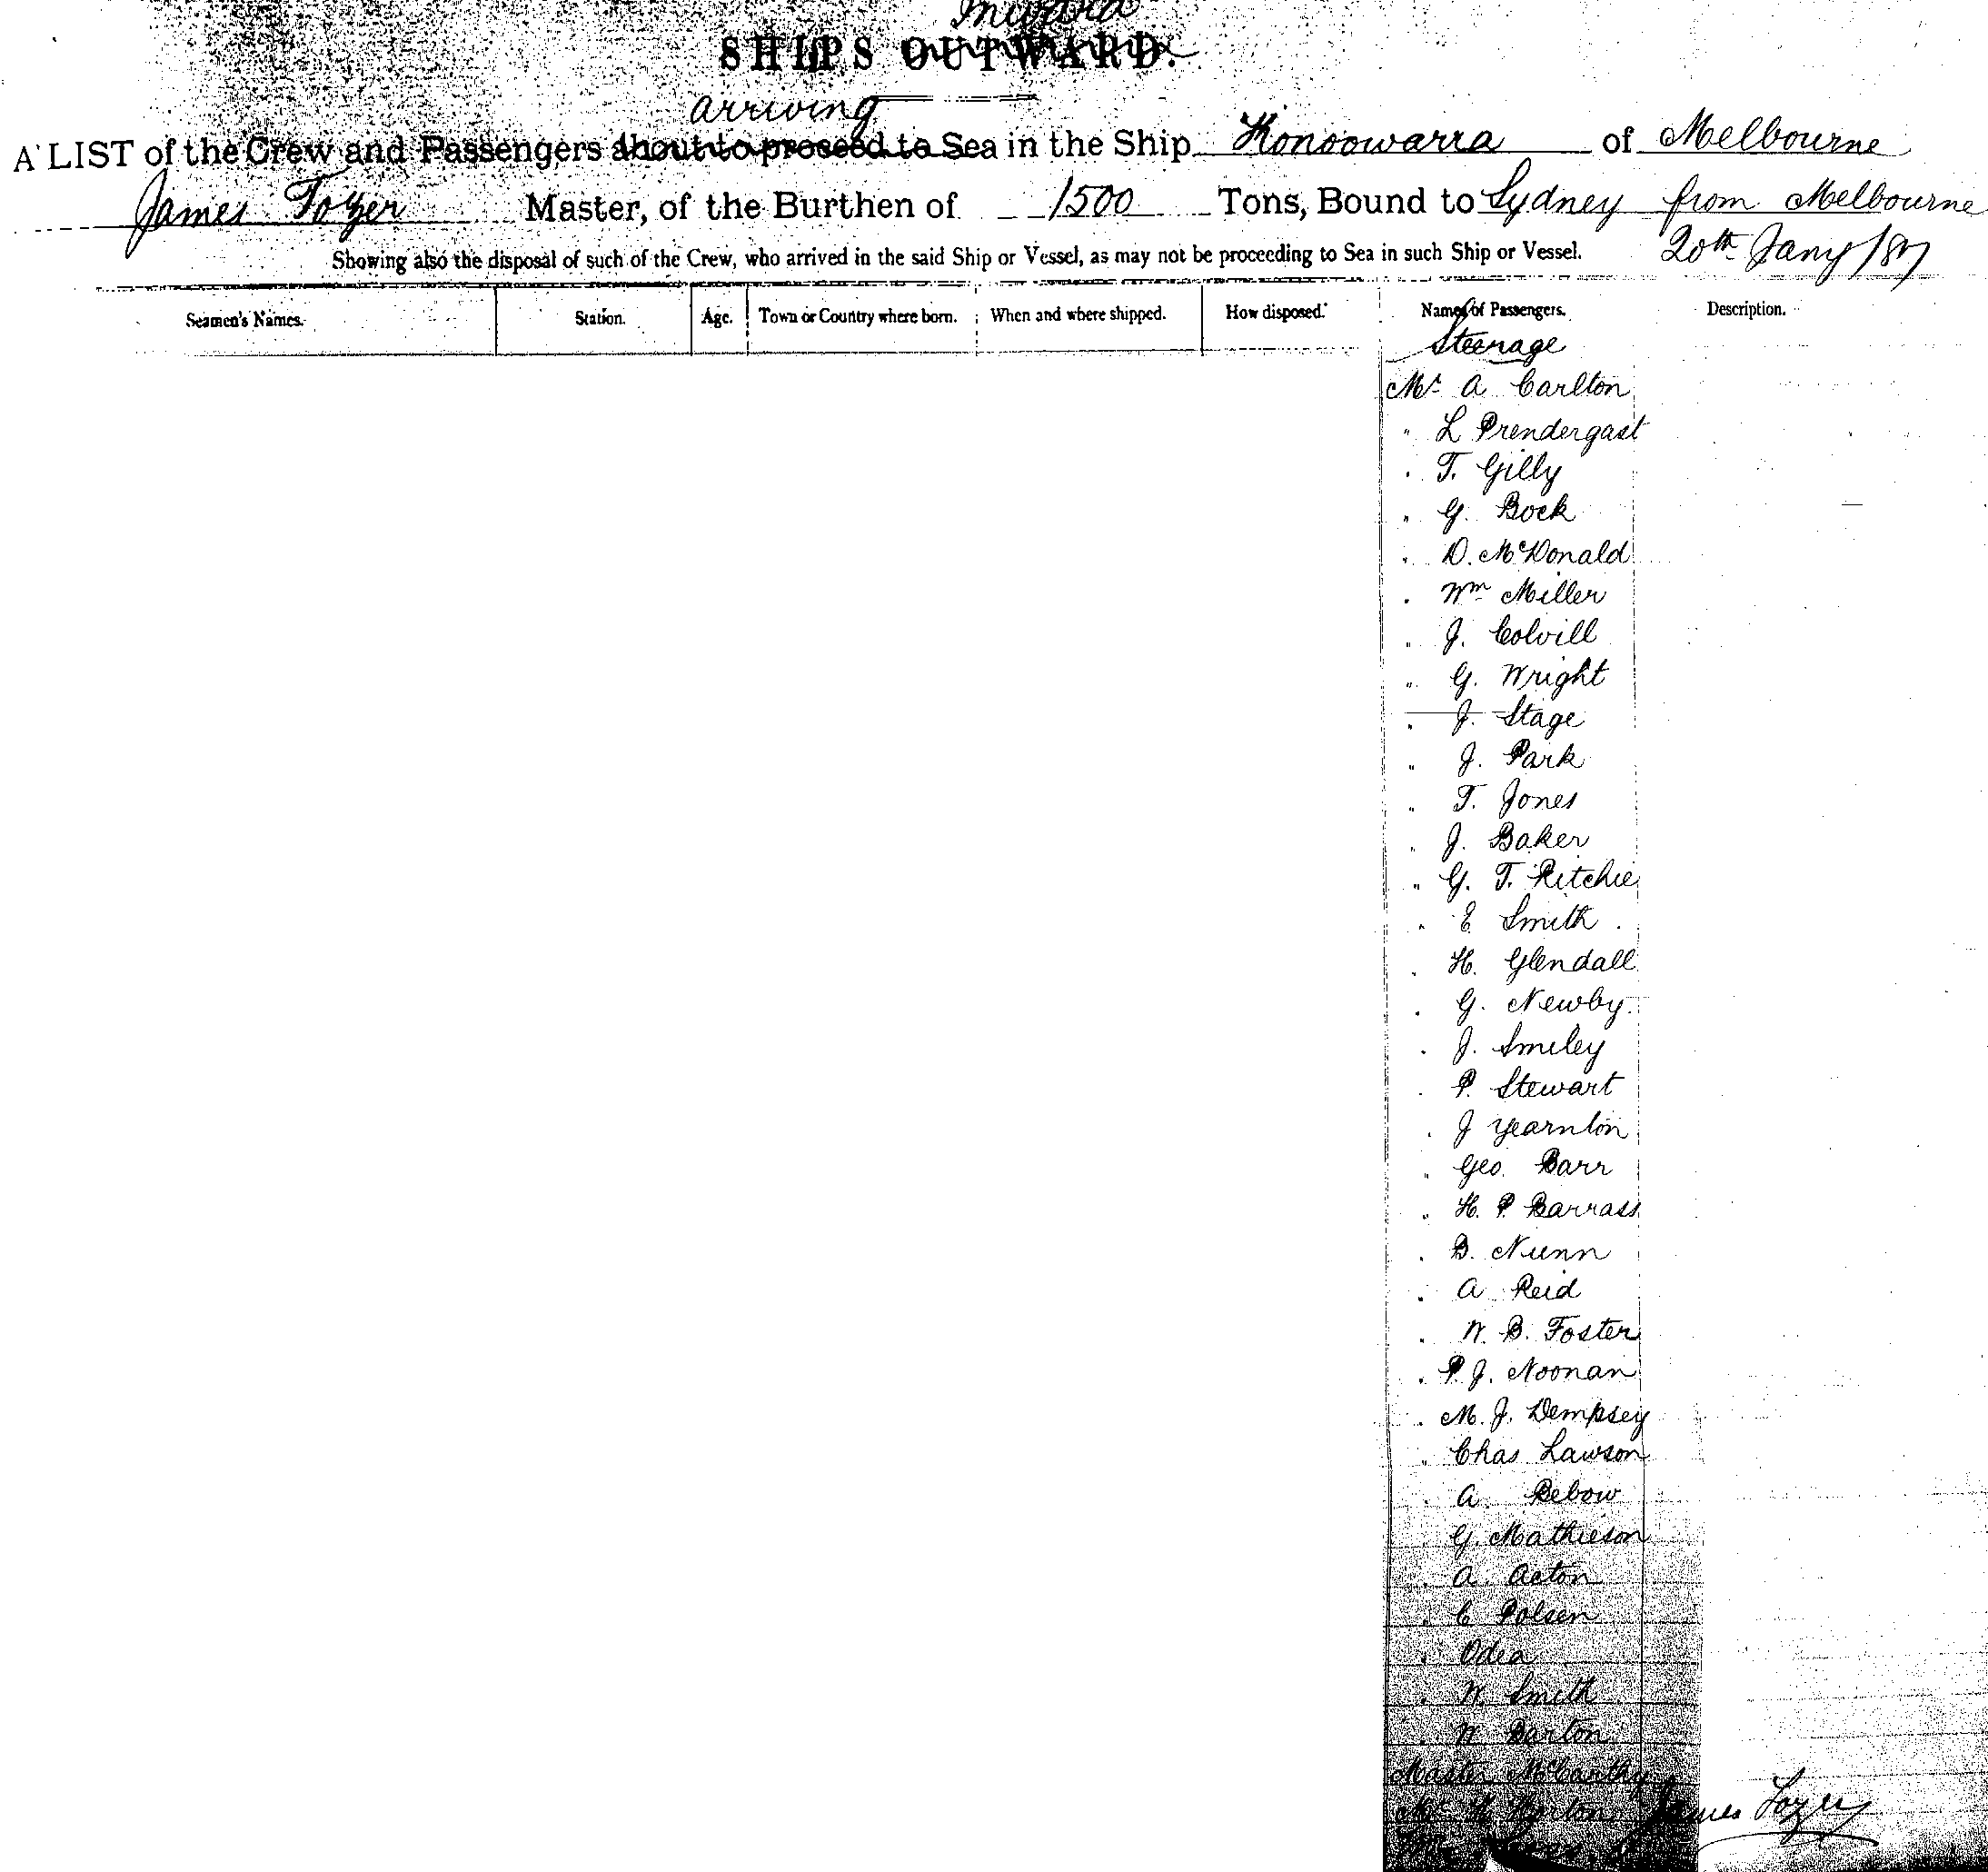 Inward
SHIPS OUTWARD.
arriving
A LIST of the Crew and Passengers about to proceed to Sea in the Ship Konoowarra of Melbourne
James Tozer Master, of the Burthen of 1500 Tons, Bound to Sydney from Melbourne
Showing also the disposal of such of the Crew, who arrived in the said Ship or Vessel, as may not be proceeding to Sea in such Ship or Vessel. 20th Jany
Seamen's Names. Station. Age. Town or Country where born. When and where shipped. How disposed. Names of Passengers. Description.
Steerage
Mr A Carlton
" L Prendergast
" T. Gilly
" G. Bock
" D. McDonald
" Wm Miller
" J. Colvill
" G. Wright
" J. Stage
" J. Park
" T. Jones
" J. Baker
" G. T. Ritchie
" E Smith
" H. Glendall
" G. Newby
" J. Smiley
" P. Stewart
" J Yearnton
" Geo. Barr
" H. P. Barrass
" B. Nunn
" A Reid
" W. B. Foster
" P. J. Noonan
" M. J. Dempsey
" Chas Lawson
" A. Bebow
" G. Mathieson
" A. Acton
" C Polsen
" Odea
" W. Smith
" W Barton
Master McCarthy
Mr H Horton James Tozer